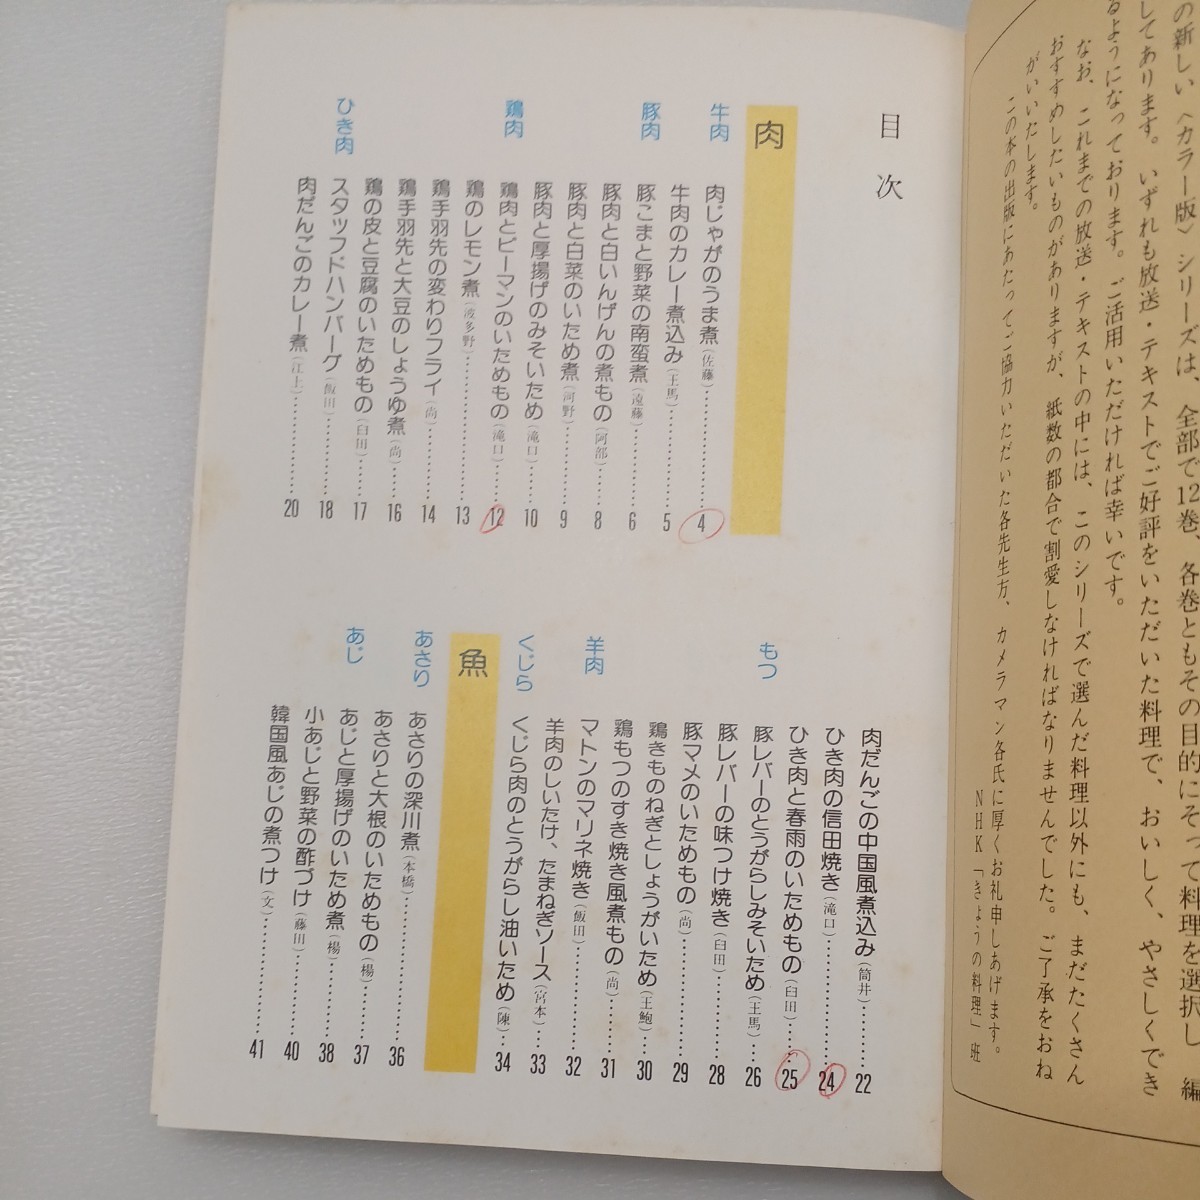 の新しい〈カラー版〉シリーズは、全部で12巻、各巻ともその目的にそって料理を選択し、編
してあります。いずれも放送・テキストでご好評をいただいた料理で、おいしく、やさしくでき
るようになっております。ご活用いただければ幸いです。
なお、これまでの放送・テキストの中には、このシリーズで選んだ料理以外にも、まだたくさん
おすすめしたいものがありますが、紙数の都合で割愛しなければなりませんでした。ご了承をおね
がいいたします。
この本の出版にあたってご協力いただいた各先生方、カメラマン各氏に厚くお礼申しあげます。
NHK「きょうの料理」班
目次
肉
牛肉
肉じゃがのうま煮(佐藤)……4
牛肉のカレー煮込み(王馬)……5
豚肉
豚こまと野菜の南蛮煮(遠藤)……6
豚肉と白いんげんの煮もの(阿部)……8
豚肉と白菜のいため煮(河野)……9
豚肉と厚揚げのみそいため(滝口)……10
鶏肉
鶏肉とピーマンのいためもの(滝口)……12
鶏のレモン煮(波多野)……13
鶏手羽先の変わりフライ(尚)……14
鶏手羽先と大豆のしょうゆ煮(尚)……16
鶏の皮と豆腐のいためもの(臼田)……17
ひき肉
スタッフドハンバーグ(飯田)……18
肉だんごのカレー煮(江上)……20
肉だんごの中国風煮込み(筒井)……22
ひき肉の信田焼き(滝口)……24
ひき肉と春雨のいためもの(臼田)……25
もつ
豚レバーのとうがらしみそいため(王馬)……26
豚レバーの味つけ焼き(臼田)……28
豚マメのいためもの(尚)……29
鶏きものねぎとしょうがいため(王鮑)……30
鶏もつのすき焼き風煮もの(尚)……31
羊肉
マトンのマリネ焼き(飯田)……32
羊肉のしいたけ、たまねぎソース(宮本)……33
くじら
くじら肉のとうがらし油いため(陳)……34
魚
あさり
あさりの深川煮(本橋)……36
あさりと大根のいためもの(楊)……37
あじ
あじと厚揚げのいため煮(楊)……38
小あじと野菜の酢づけ(藤田)……40
韓国風あじの煮つけ(文)……41